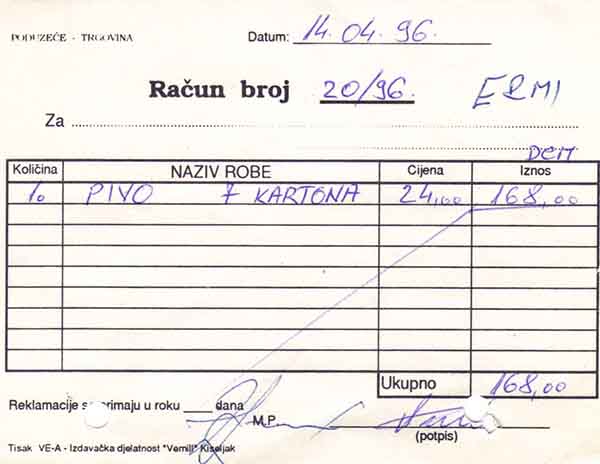 PODUZEĆE - TRGOVINA Datum: 14.04.96.
Račun broj 20/96. ERMI
Za
DEM
Količina NAZIV ROBE Cijena Iznos
1. PIVO 7 KARTONA 24,00 168,00
Ukupno 168,00
Reklamacije se primaju u roku ___ dana
M.P.
(potpis)
Tisak VE-A - Izdavačka djelatnost "Vemill" Kiseljak